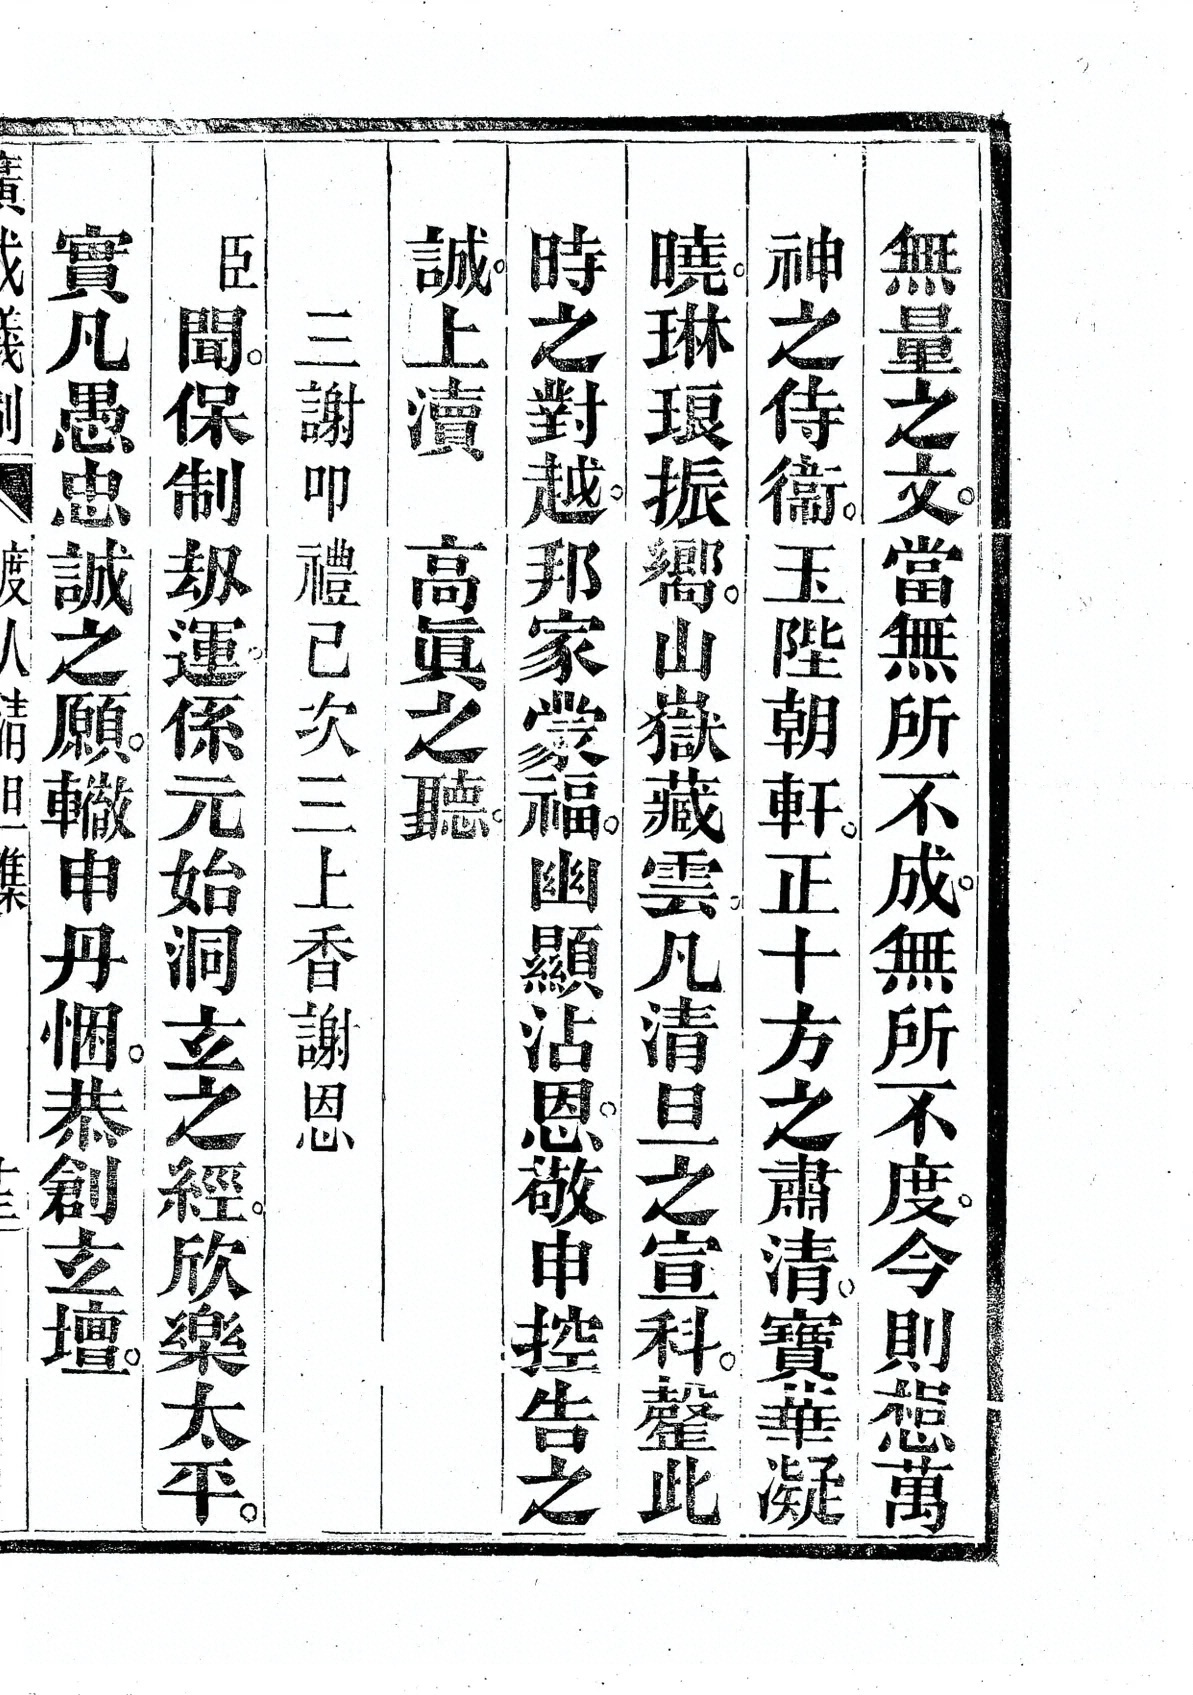 無量之文。當無所不成。無所不度。今則想萬
神之侍衞。玉陛朝軒。正十方之肅清。寶華凝
曉。琳琅振嚮。山嶽藏雲。凡清旦之宣科。罄此
時之對越。邦家蒙福。幽顯沾恩。敬申控告之
誠。上瀆　高眞之聽。
三謝叩禮已次三上香謝恩
臣聞。保制劫運。係元始洞玄之經。欣樂太平。
實凡愚忠誠之願。轍申丹悃。恭創玄壇。
廣成儀制　度人清旦集　十三